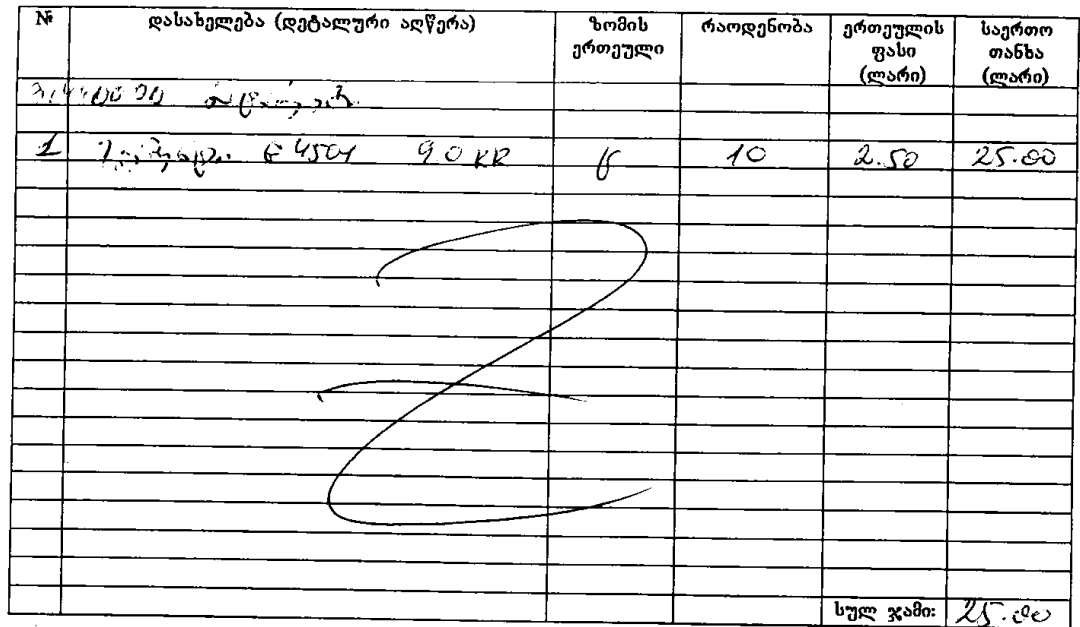 № დასახელება (დეტალური აღწერა) ზომის ერთეული რაოდენობა ერთეულის ფასი (ლარი) საერთო თანხა (ლარი)
1 90 KR ც 10 2.50 25.00
სულ ჯამი: 25.00